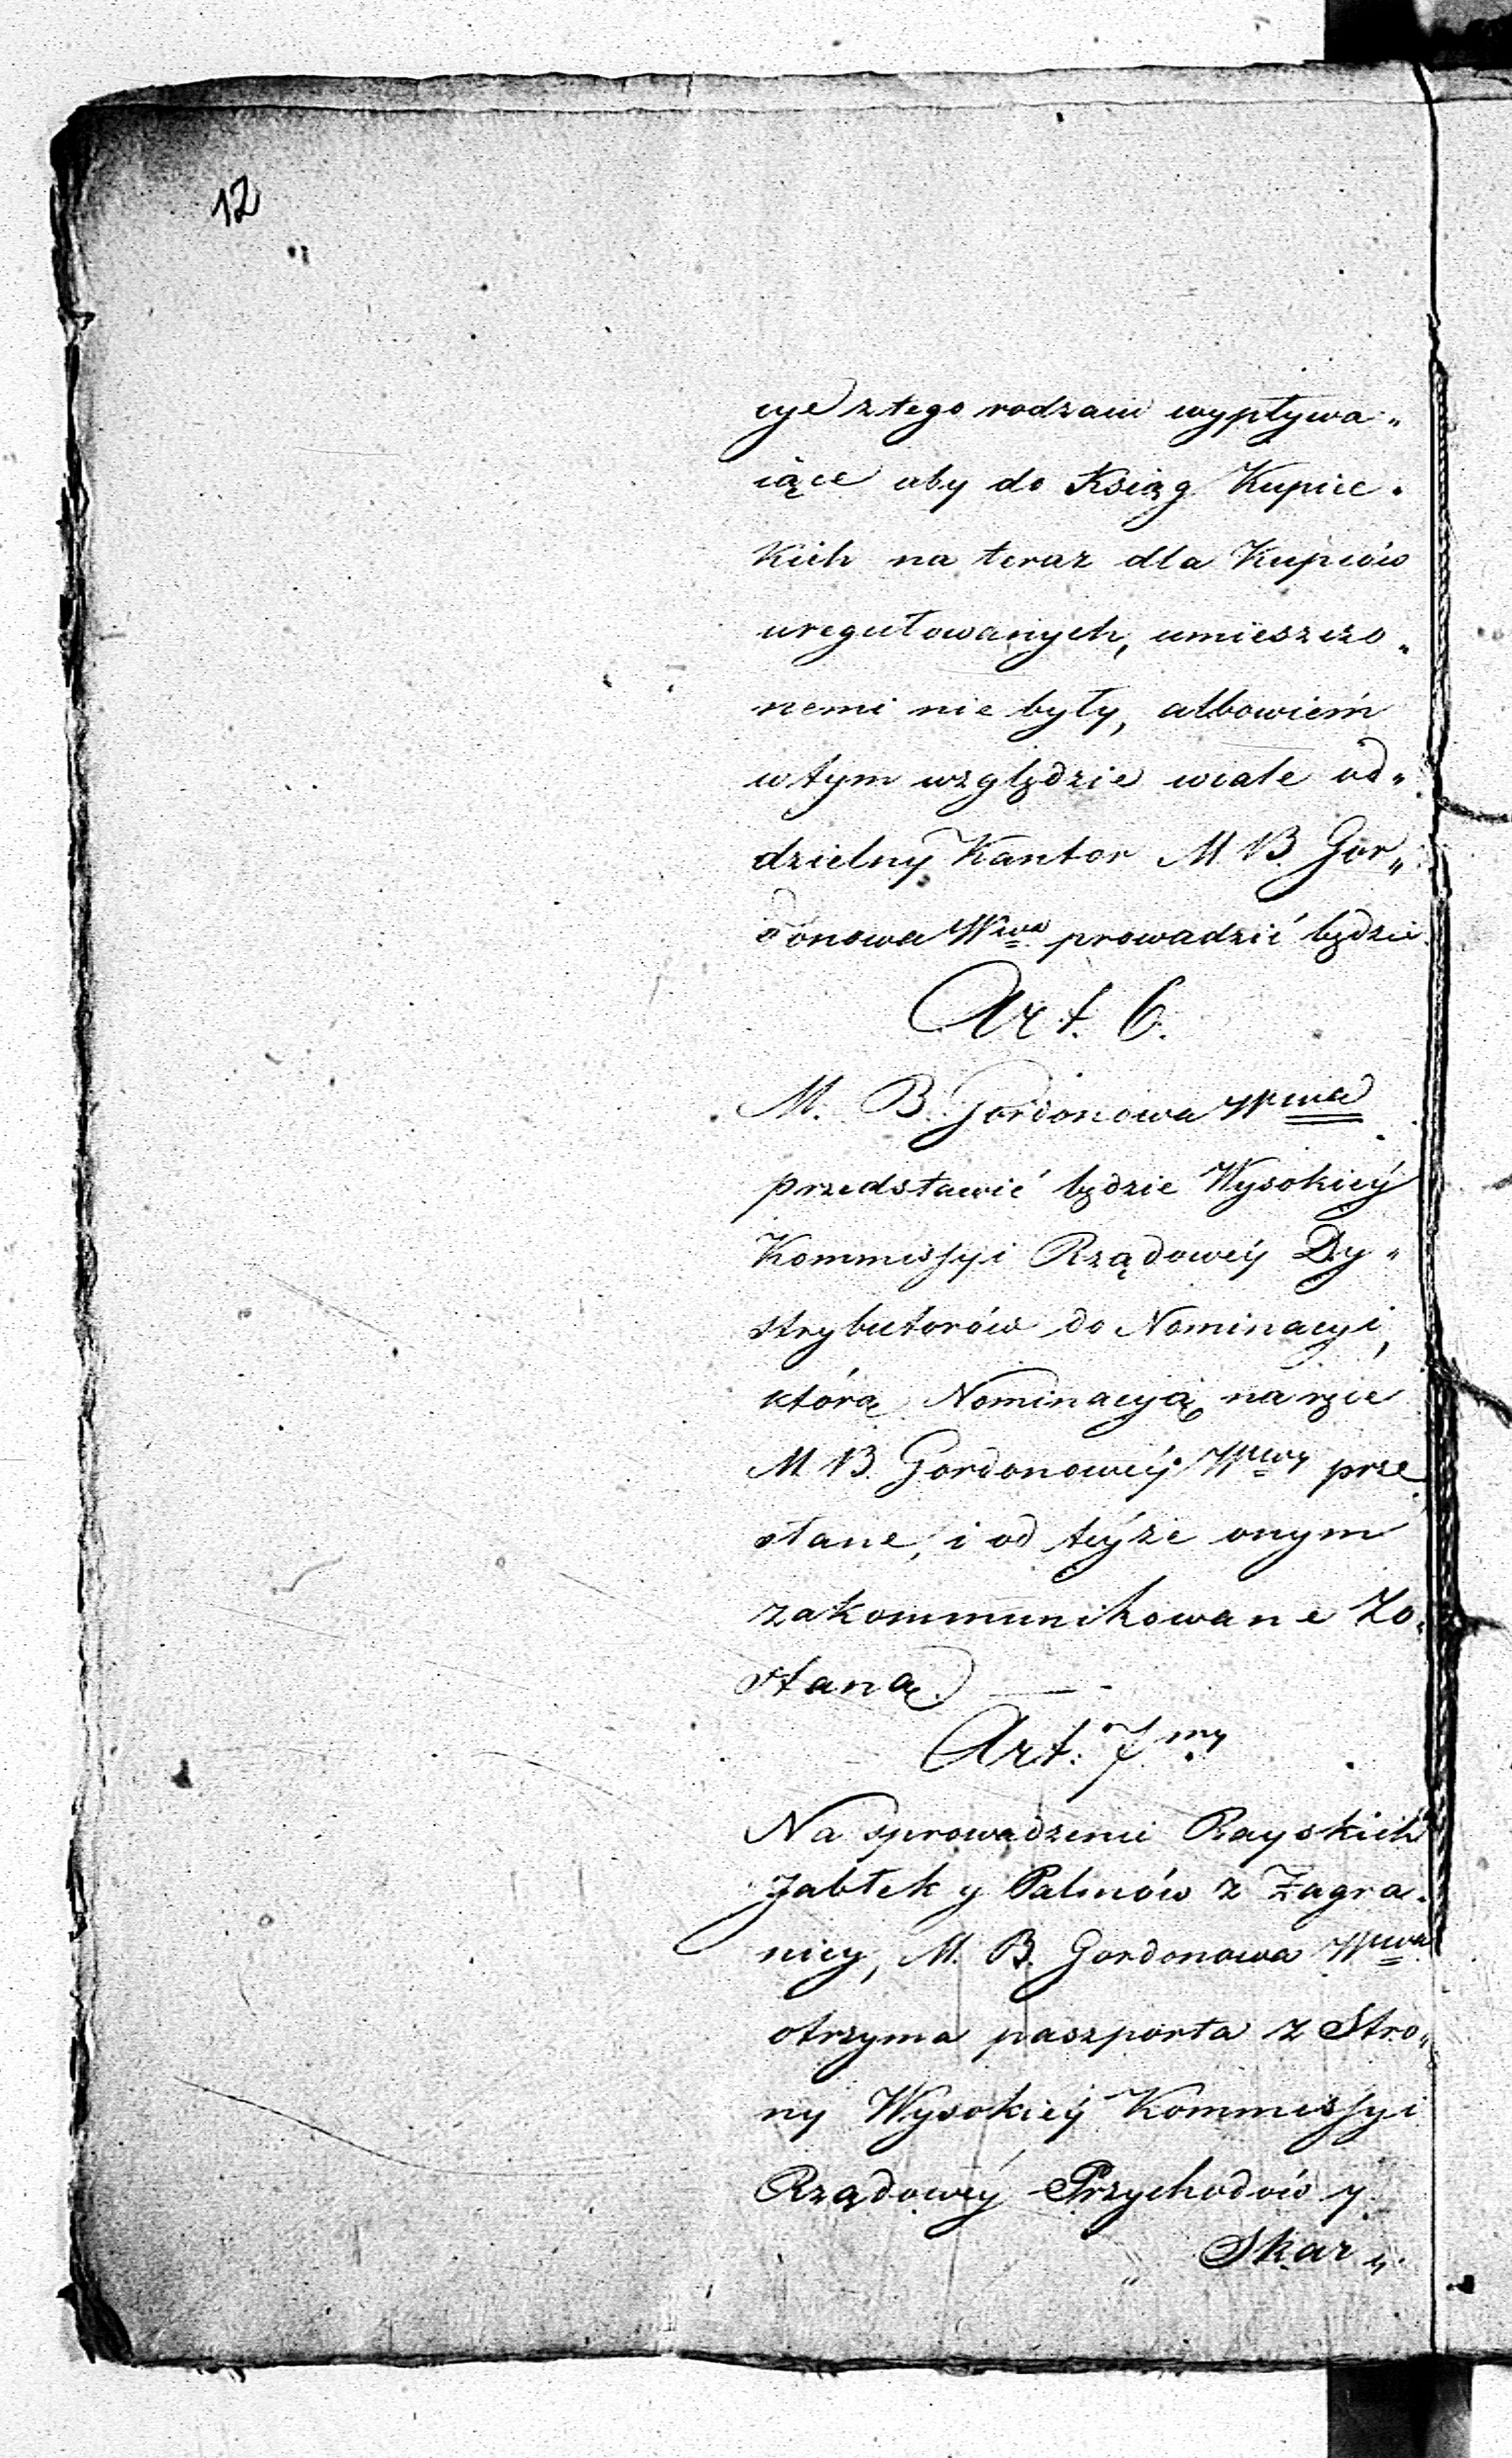 12
cye z tego rodzaiu wypływa„
iące aby do Ksiąg Kupiec„
kich na teraz dla Kupców
uregulowanych, umieszczo„
nemi nie były, albowiem
w tym względzie wcale od„
dzielny Kantor M. B. Gor„
donowa Wwa prowadzić będzie
Art. 6.
M. B. Gordonowa Wwa
przedstawić będzie Wysokiéy
Kommissyi Rządowéy Dy„
strybutorów do Nominacyi,
którą Nominacyią na ręce
M. B. Gordonowéy Wwy prze
słane, i od téyże onym
zakommunikowane Zo„
staną.
Art. 7my
Na sprowadzenie Rayskich
Jabłek y Palmów z Zagra„
nicy, M. B. Gordonowa Wwa
otrzyma paszporta z Stro„
ny Wysokiéy Kommissyi
Rządowéy Przychodów y
Skar„